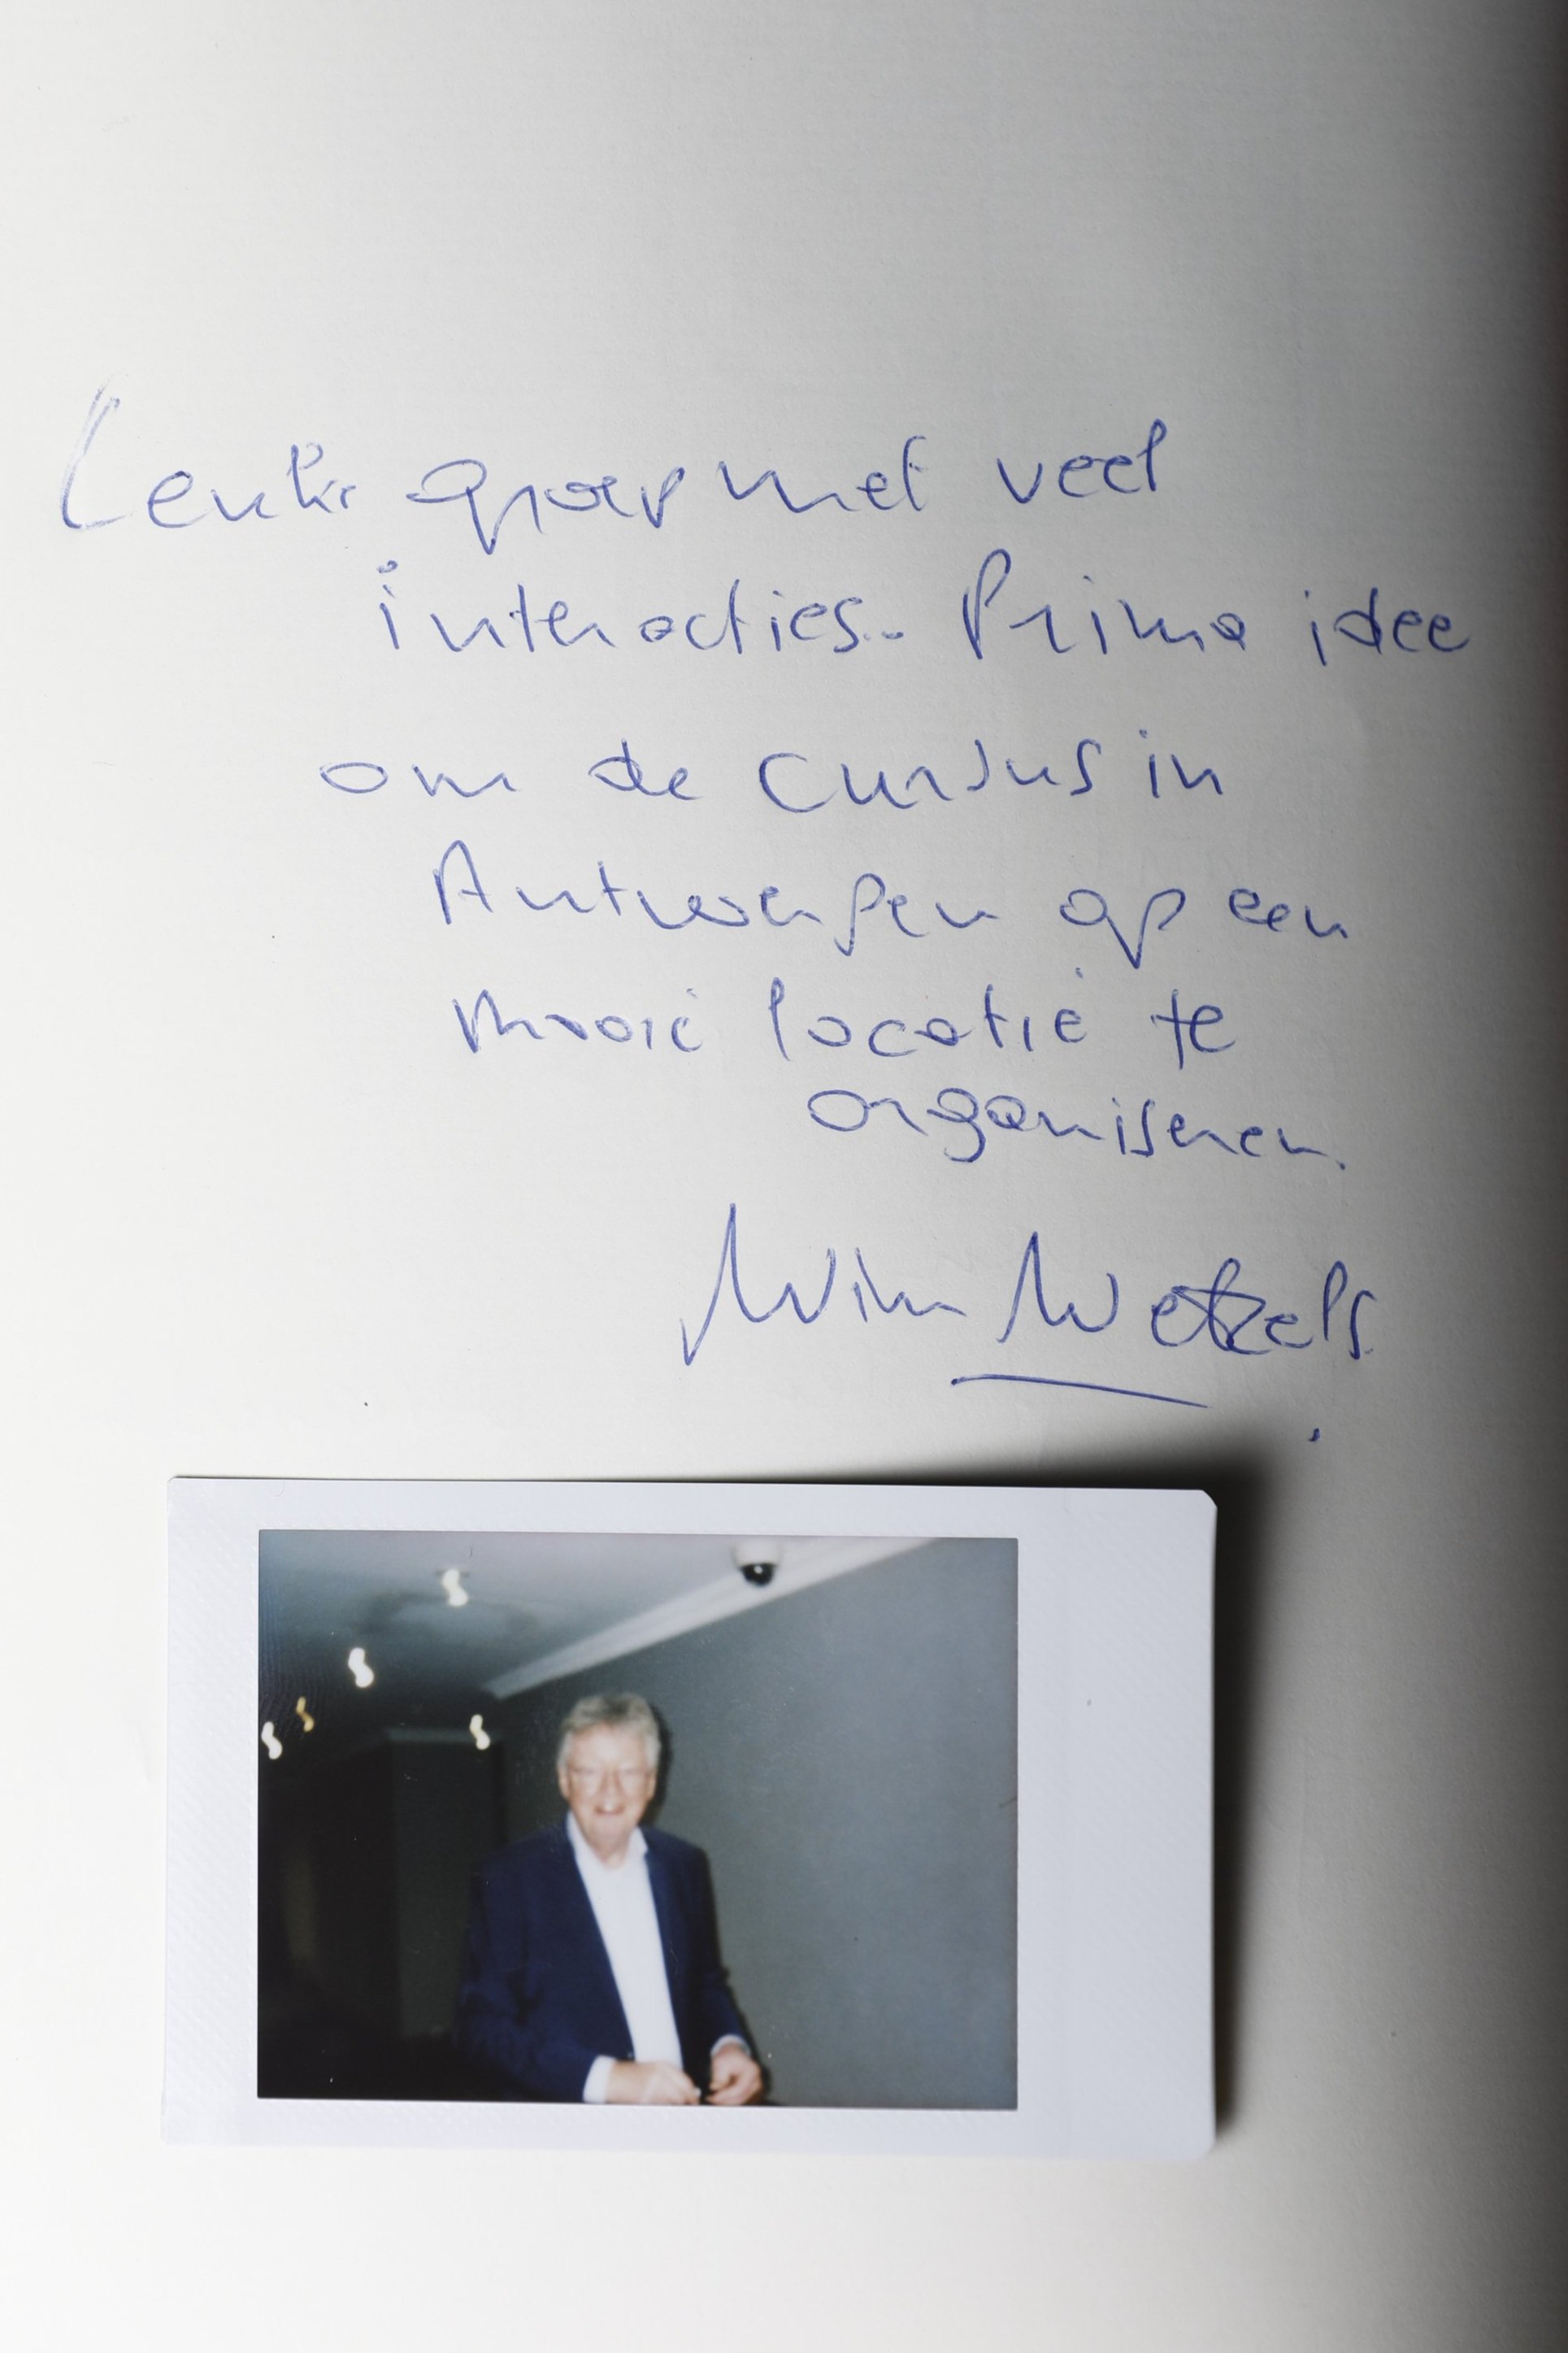 Leuke groep met veel
interacties. Prima idee
om de cursus in
Antwerpen op een
mooie locatie te
organiseren.
Wim Wetzels